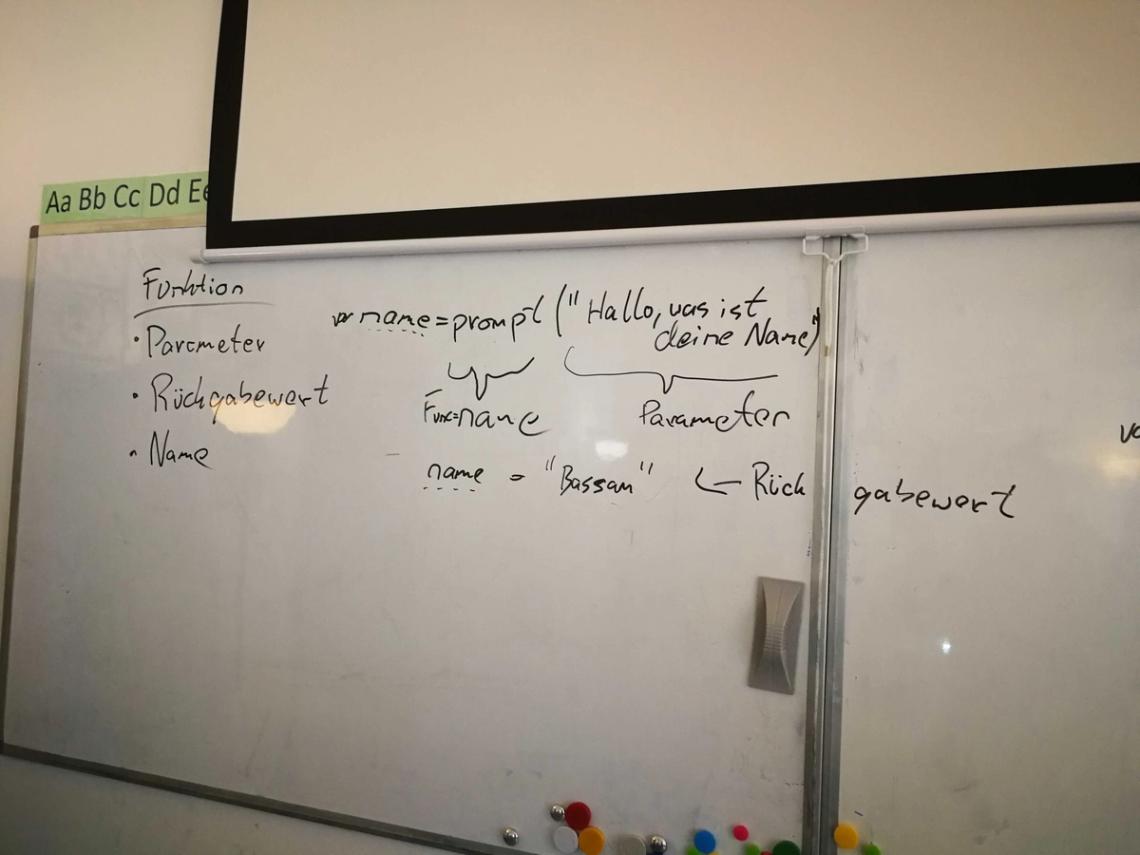 Aa Bb Cc Dd Ee
Funktion
• Parameter
• Rückgabewert
• Name
var name = prompt ("Hallo, was ist
deine Name")
Func=name
Parameter
name = "Bassam" ← Rückgabewert